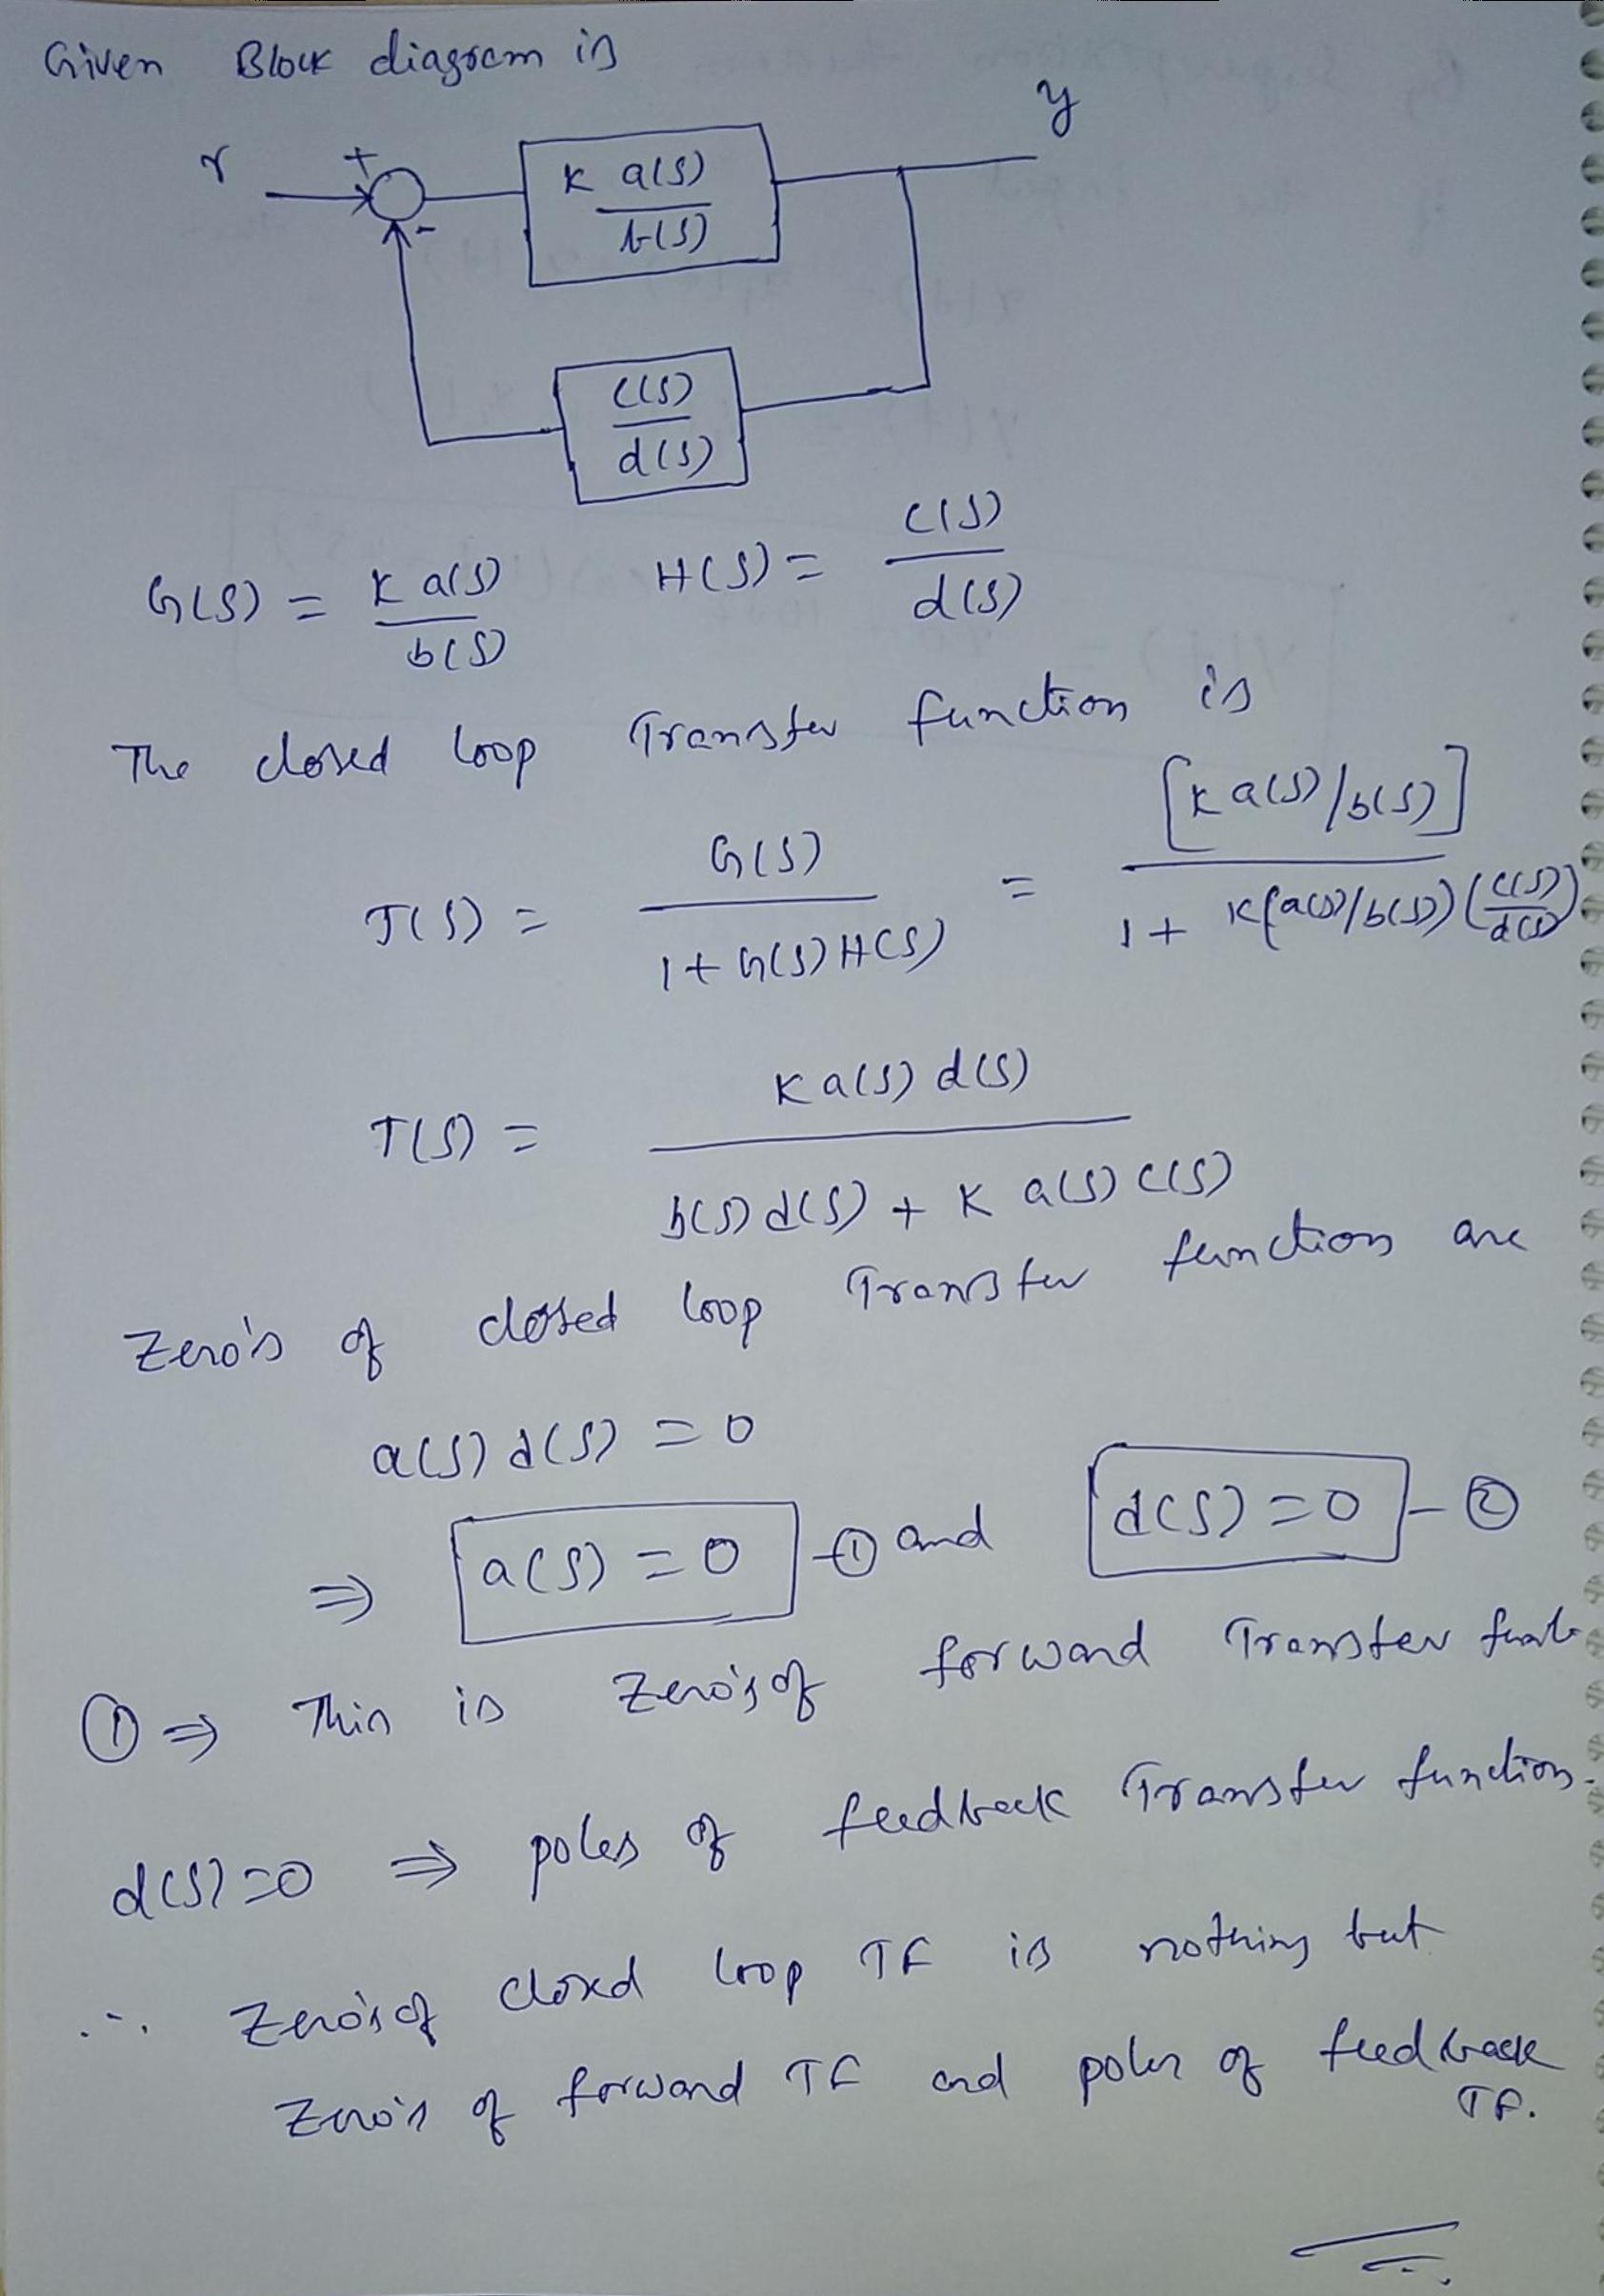 Given Block diagram is
y
r + K a(s)
b(s)
-
c(s)
d(s)
G(s) = K a(s) / b(s) H(s) = c(s) / d(s)
The closed loop Transfer function is
T(s) = G(s) / 1+G(s)H(s) = [K a(s)/b(s)] / 1+ K(a(s)/b(s))(c(s)/d(s))
T(s) = K a(s) d(s) / b(s) d(s) + K a(s) c(s)
Zero's of closed loop Transfer function are
a(s) d(s) = 0
⇒ a(s) = 0 - ① and d(s) = 0 - ②
① ⇒ This is zero's of forward Transfer
d(s)=0 ⇒ poles of feedback Transfer function.
∴ Zero's of closed loop TF is nothing but
Zero's of forward TF and poles of feedback
TF.